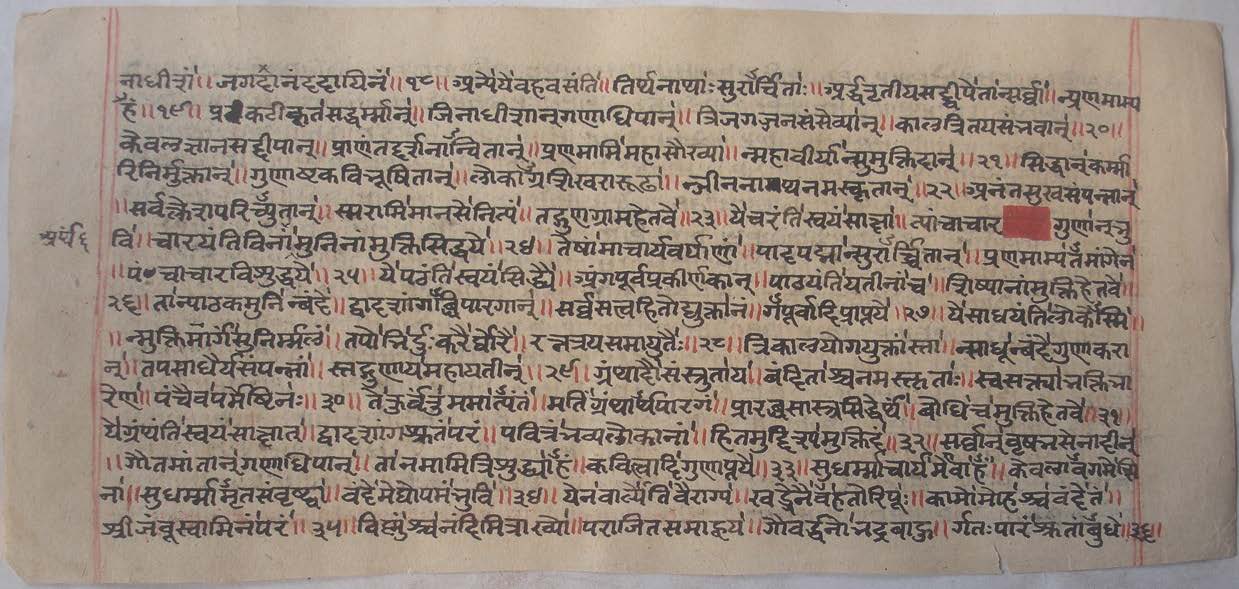 नाधीशं॥ जगदानंददायिनं॥१८॥ अन्येयेवहवसंति॥ तिर्थनाथाःसुरार्चिताः॥ अर्द्धतृतीयसद्द्वीपे न्प्रणमाम्य
हं॥१९॥ प्रकटीकृतसद्धर्म्मान्॥ जिनाधीशान्गणाधिपान्॥ त्रिजगज्जनसंसेव्यान्॥ कालत्रितयसंभवान्॥२०॥
केवलज्ञानसद्दीपान्॥ प्रणमामिमहासौख्या॥ न्महावीर्यान्सुमुक्तिदान्॥२१॥ सिद्धान्कर्म्मा
रिनिर्मुक्तान्॥ गुणाष्टकविभूषितान्॥ लोकाग्रशिखरारूढा॥ नमस्कृतान्॥२२॥ अनंतसुखसंपन्नान्
॥ स्मरामिमानसेनित्यं॥ तद्गुणग्रामहेतवे॥२३॥ येचरंतिस्वयंसाक्षा॥ त्पंचाचार गुणान्भु
वि॥ चारयंतिविनांमुनिनांमुक्तिसिद्धये॥२४॥ तेषामाचार्यवर्याणां॥ पादपद्मान्सुरार्च्चितान्॥
॥ पंचाचारविशुद्धये॥२५॥ येपठंतिस्वयंसिद्ध्यै॥ अंगपूर्वप्रकीर्णकान्॥ पाठयंतियतीनांच॥ शिष्यानांमुक्तिहेतवे॥
२६॥ तान्पाठकमुनिन्वंदे॥ द्वादशांगाब्धिपारगान्॥ सर्वसत्वहितोद्युक्तानं॥ गपूर्वादिप्राप्तये॥२७॥ येसाधयंतिलोकेस्मि॥
॥ न्मुक्तिमार्गसुनिर्म्मलं॥ तपोभिर्दुःकरैर्घोरै॥ रत्नत्रयसमायुतैः॥२८॥ त्रिकालयोगयुक्तांस्ता॥ न्साधून्वंदेगुणाकरा
न्॥ तपसाधैर्यसंपन्नां॥ स्तद्गुणायमहायतीन्॥२९॥ ग्रंथादौसंस्तुताये॥ वंदिताश्चनमस्कृताः॥ स्वसक्त्याभक्तिभा
रेण॥ पंचैवपरमेष्टिनः॥३०॥ तेकुर्वंतुममात्यंतं॥ मतिग्रंथार्थपारगं॥ प्रारब्धसास्त्रसिद्धर्थं॥ बोधिंचमुक्तिहेतवे॥३१॥
येग्रंथंतिस्वयंसाक्षात॥ द्वादशांगश्रुतंपरं॥ पवित्रंभव्यलोकानां॥ हितमुद्दिश्यमुक्तिदं॥३२॥ सर्वान्वृषभसेनादीन्
॥ गौतमांतान्गणाधिपान्॥ तानमामित्रिशुद्ध्याहं॥ कवित्वादिगुणाप्तये॥३३॥ सुधर्म्माचार्यमेवाहं॥
ना॥ सुधर्म्मामृतसवृष्ट्या॥ वंदेमेघोपमंभुवि॥३४॥ येनवाल्येतिवैराग्य॥ खड्गेनैवहतोरिपूः॥ कामोमोहश्चवंदेतं॥
श्रीजंबूस्वामिनंपरं॥३५॥ विष्णुंश्चनंदिमित्राख्यो॥ पराजितसमाह्वय॥ गोवर्द्धनोभद्रबाहु॥ र्गतःपारंश्रुतांबुधे॥३६॥